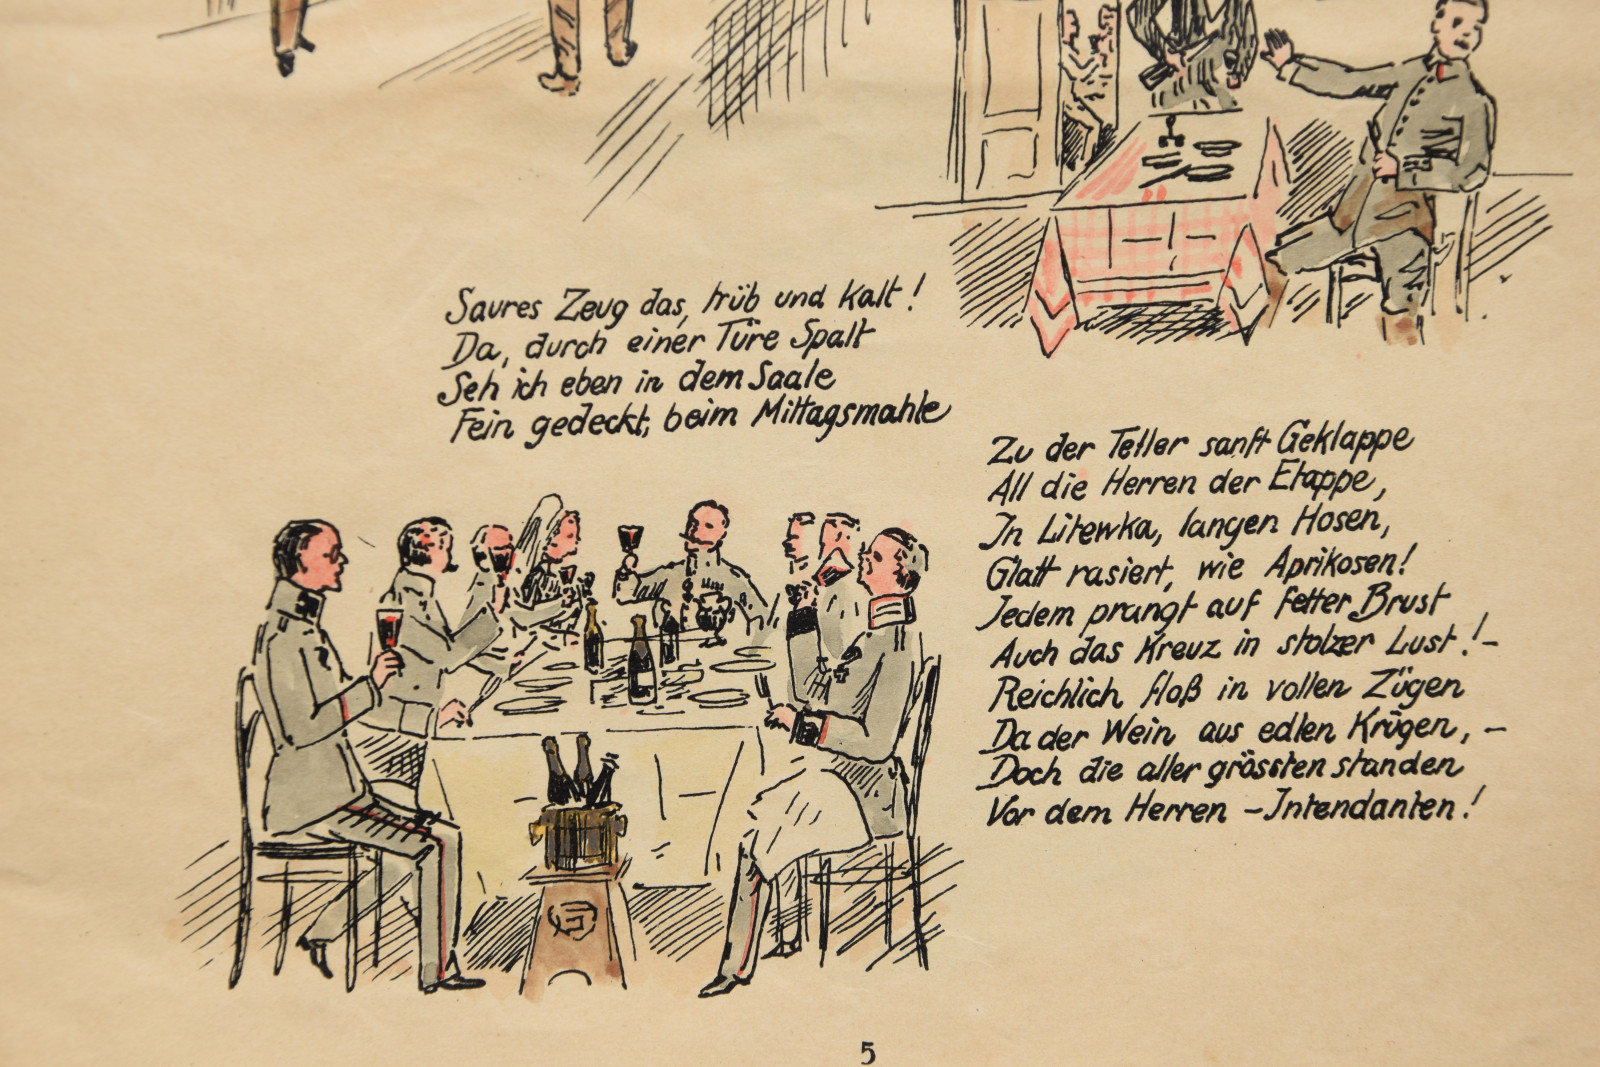 Saures Zeug das, trüb und kalt!
Da, durch einer Türe Spalt
Seh ich eben in dem Saale
Fein gedeckt, beim Mittagsmahle
Zu der Teller sanft Geklappe
All die Herren der Etappe,
In Litewka, langen Hosen,
Glatt rasiert, wie Aprikosen!
Jedem prangt auf fetter Brust
Auch das Kreuz in stolzer Lust! –
Reichlich floß in vollen Zügen
Da der Wein aus edlen Krügen, –
Doch die aller grössten standen
Vor dem Herren – Intendanten!
5